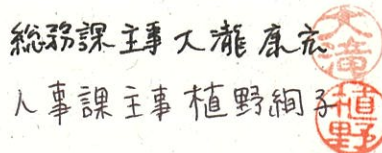 総務課主事 大瀧康宏
人事課主事 植野絢子
大滝
植野